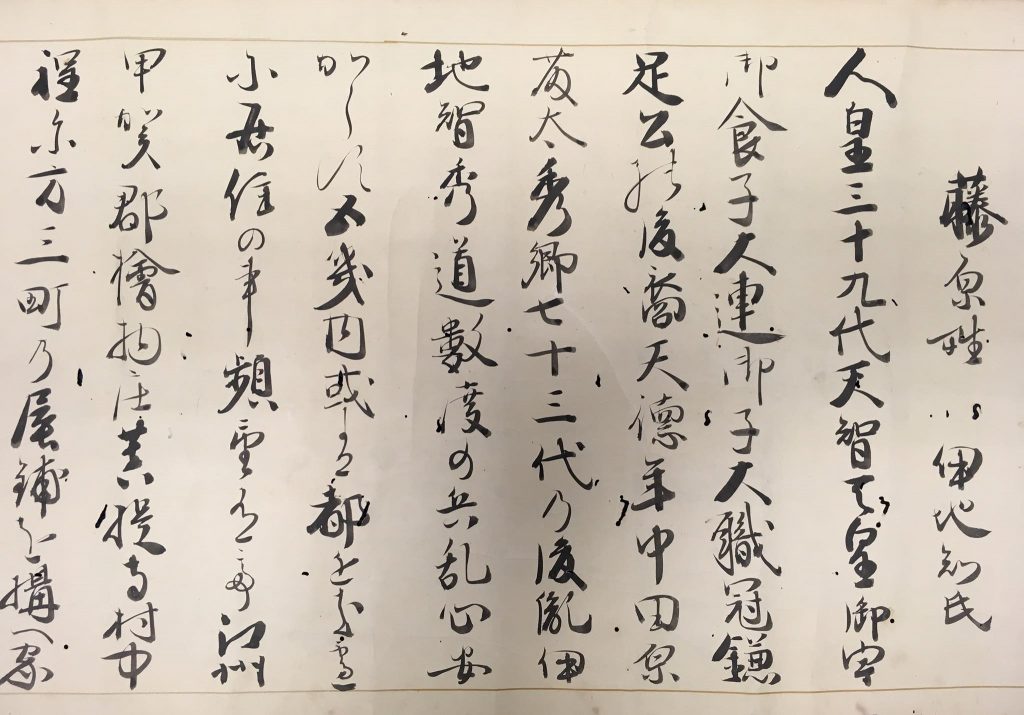 藤原姓 伊地知氏
人皇三十九代天智天皇御宇
御食子大連御子大職冠鎌
足公の後裔天德年中田原
藤太秀卿七十三代乃後胤伊
地智秀道數度の兵乱心安
からす五幾内或は都を
小居住の事頻 江州
甲賀郡檜物庄菩提寺村中
程尓方三町乃屋鋪を搆へ家